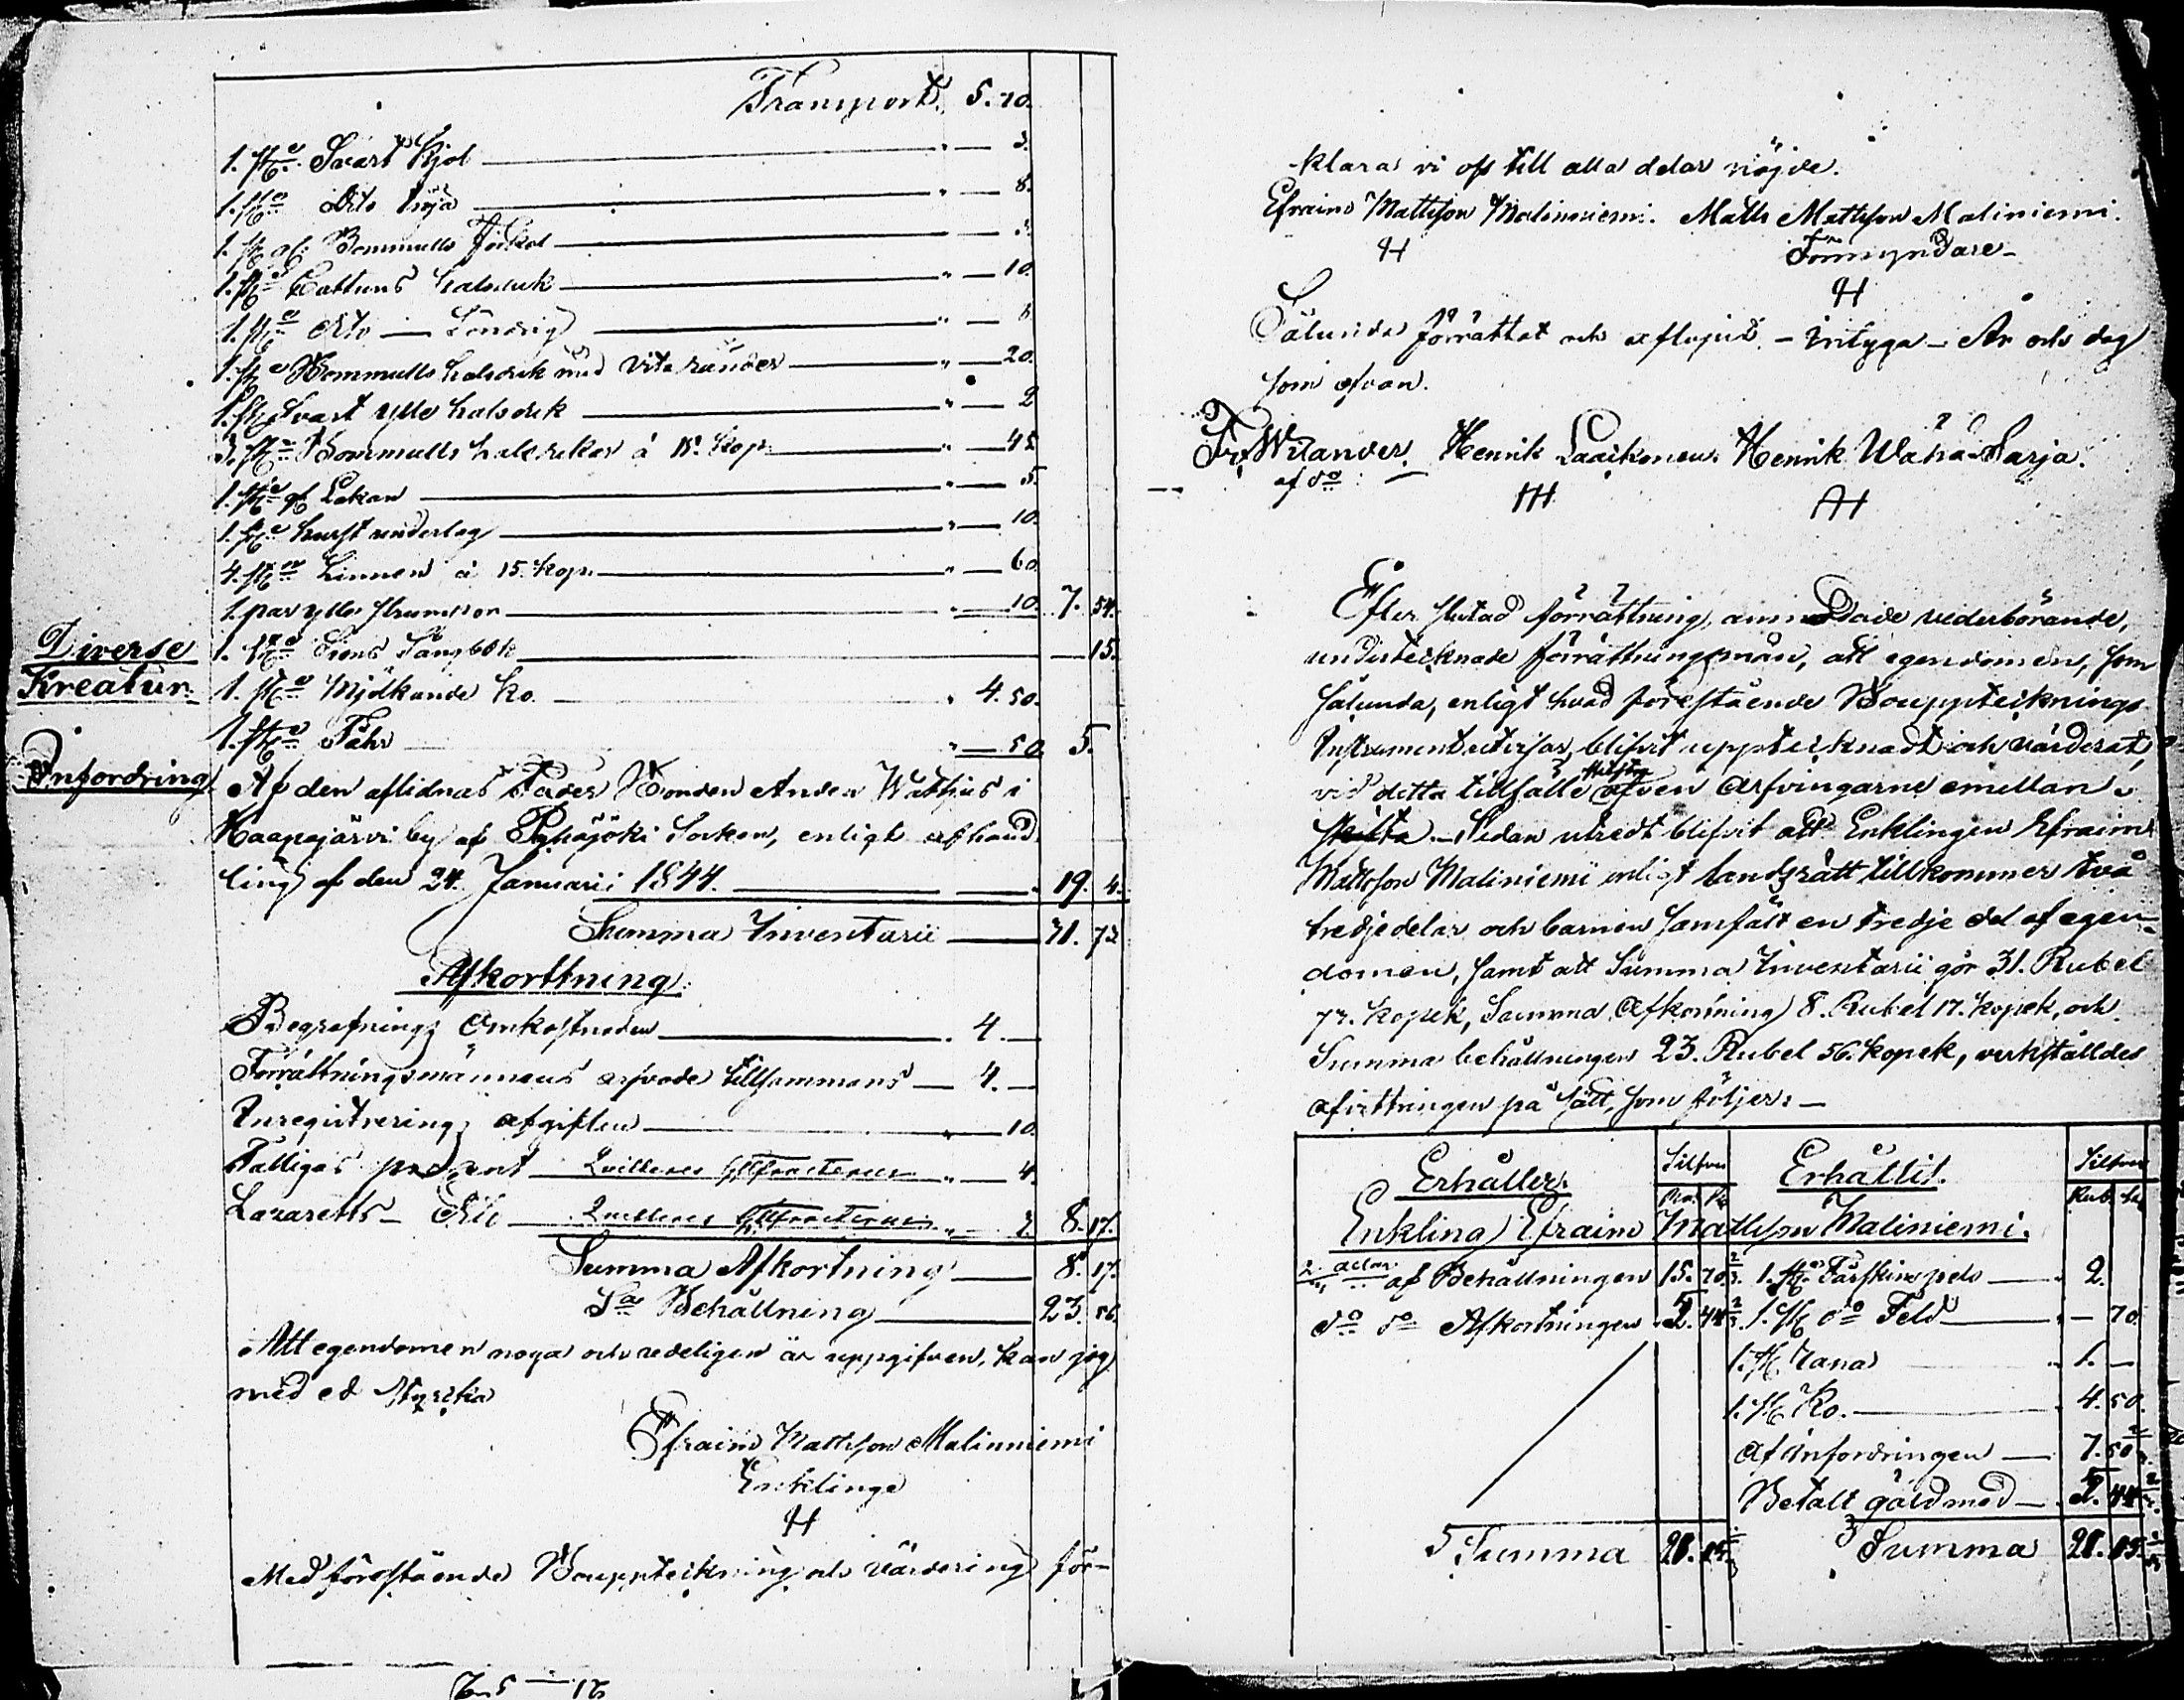 Transport. 5. 70.
1. st. Svart Kjol " — 3.
1. st. dito tröja " — 8.
1. st. gl. Bommulls förkol " — 3.
1. st. Cattuns halsduk " — 10.
1. st. dito — Söndrig " —
1. st. Bommulls halsduk med vita ränder " — 20.
1. st. Svart ylle halsduk " — 2
3. st. Bommulls halsdukar á 15. kop. " — 45
1. st. gl. Lakan " — 5.
1. st. hurst underlag " — 10.
4. st. Linnen á 15. kop. " — 60.
1. par ylle strumpor " — 10. 7. 54.
Diverse
1. st. Sions Sångbok — 15.
Kreatur.
1. st. Mjölkande ko. " 4. 50.
1. st. Fåhr " — 50 5.
Infordring
Af den aflidnas Fader Bonden Anders Mattsius i
Haapajärvi by af Pyhäjöki Socken, enligt afhand
ling af den 24. Januarii 1844. 19. 4.
Summa Inventarii 31. 73
Afkorttning.
Begrafnings Omkostnaden 4. —
Förrättningsmännens arfvode tillsammans — 4. —
Inregistrering afgiften " — 10.
Fattigas procent " — 4.
Lazaretts — dito " — 3. 8. 17.
Summa Afkortning 8. 17.
S:a Behållning 23. 56.
Att egendomen noga och redeligen är uppgifven, kan jag
med ed styrka
Efraim Mattsson Malinniemi
Enklinge
H
Med förestående Bouppteckning och värdering för-
-klara vi oss till alla delar nöjde.
Efraim Mattsson Maliniemi. Matts Mattsson Maliniemi.
Förmyndare —
H H
Sålunda förrättat och aflupit, — intyga — År och dag
som ofvan.
Fr. Wilander. Henrik Laaikonen. Henrik Wähä-Sarja.
af do:
HH HH
Efter slutad förrättning, anmodade vederbörande,
undertecknade förrättningsmän, att egendomen, som
sålunda, enligt hvad förestående Bouppteknings
Instrument utvisar, blifvit upptecknadt och värderat,
vid detta tillfälle äfven arfvingarne emellan
skifta. — Sedan utredt blifvit att Enklingen Efraim
Mattsson Maliniemi enligt landsrätt tillkommer två
tredjedelar och barnen samfält en tredje del af egen-
domen, samt att Summa Inventarii gör 31. Rubel
73. kopek, Summa Afkortning 8. Rubel 17. kopek, och
Summa behållningen 23. Rubel 56. kopek, verkställdes
afvittringen på sätt, som följer: —
Erhåller. Silfver Erhållit. Silfver
Rub. Ko Rub. ko
Enkling Efraim Mattsson Maliniemi.
2/3 delar af Behållningen 15. 70 2/3. 1. st. Fårskinspels — 2.
do do Afkortningen 5. 44 2/3. 1. st. do Feld — 70.
1. st. Rana 1. —
1. st. Ko. 4. 50.
Af Infordringen — 7. 50 2/3
Betalt gäld med — 5. 44 2/3.
Summa 21. 15 1/3 Summa 21. 15 1/3